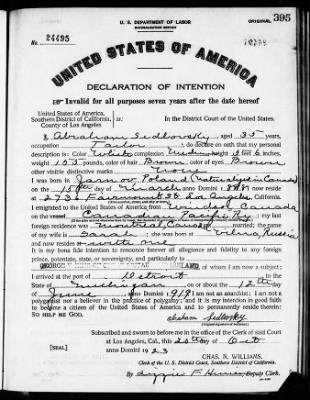 U. S. DEPARTMENT OF LABOR
NATURALIZATION SERVICE
ORIGINAL 395
No. 24495
UNITED STATES OF AMERICA
DECLARATION OF INTENTION
Invalid for all purposes seven years after the date hereof
United States of America,
Southern District of California, ss:
County of Los Angeles
In the District Court of the United States.
I, Abraham Sedlovsky, aged 35 years,
occupation Tailor, do declare on oath that my personal
description is: Color White, complexion, height 5 feet 6 inches,
weight 155 pounds, color of hair Brown, color of eyes Brown
other visible distinctive marks none
I was born in Poland
on the 15th day of March, anno Domini; I now reside
at 2731 Fairmount St Los Angeles, California.
I emigrated to the United States of America from Windsor Canada
on the vessel Canadian Pacific Ry; my last
foreign residence was Montreal, Canada; married; the name
of my wife is Sarah; she was born at Vilna, Russia
and now resides at with me
It is my bona fide intention to renounce forever all allegiance and fidelity to any foreign
prince, potentate, state, or sovereignty, and particularly to
of whom I am now a subject;
I arrived at the port of Detroit, in the
State of Michigan, on or about the 12th day
of June, anno Domini 1919; I am not an anarchist; I am not a
polygamist nor a believer in the practice of polygamy; and it is my intention in good faith
to become a citizen of the United States of America and to permanently reside therein:
SO HELP ME GOD.
Abraham Sedlovsky
(Original signature of declarant)
Subscribed and sworn to before me in the office of the Clerk of said Court
at Los Angeles, Cal., this 20th day of Oct
[SEAL]
anno Domini 1923
CHAS. N. WILLIAMS,
Clerk of the U. S. District Court, Southern District of California.
By Deputy Clerk.